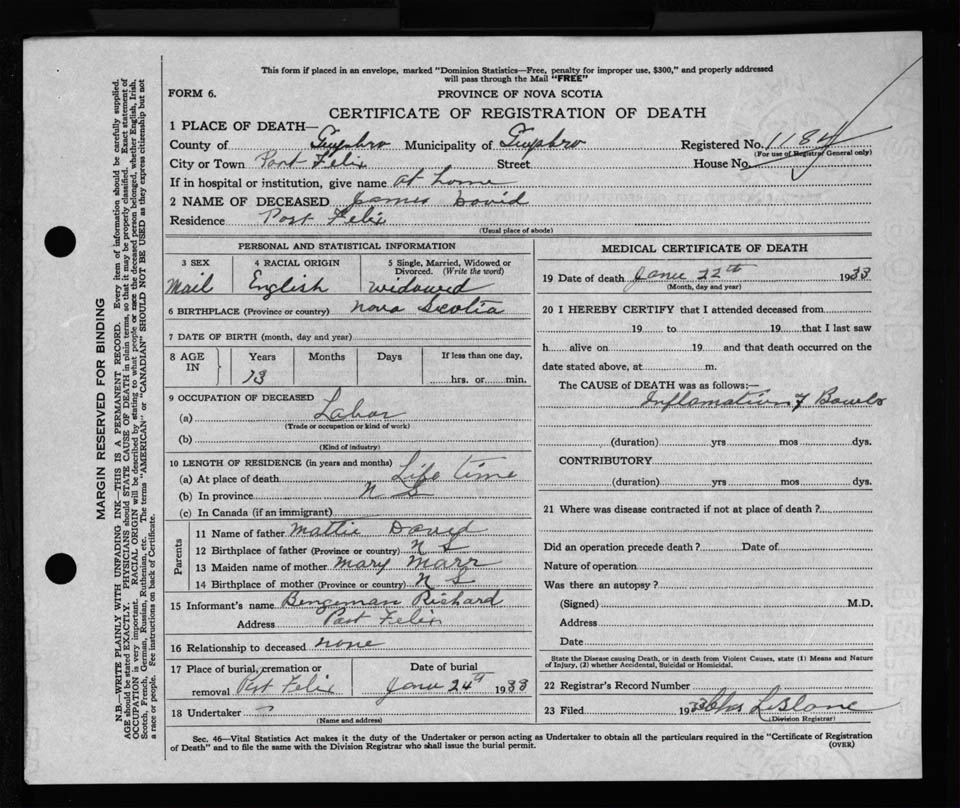 This form if placed in an envelope, marked "Dominion Statistics—Free, penalty for improper use, $300," and properly addressed
will pass through the Mail "FREE"
FORM 6. PROVINCE OF NOVA SCOTIA
CERTIFICATE OF REGISTRATION OF DEATH
1 PLACE OF DEATH—
County of Municipality of Registered No. 1184
(For use of Registrar General only)
City or Town Port Felix Street House No.
If in hospital or institution, give name at home
2 NAME OF DECEASED James David
Residence Port Felix
(Usual place of abode)
PERSONAL AND STATISTICAL INFORMATION
3 SEX 4 RACIAL ORIGIN 5 Single, Married, Widowed or
Divorced. (Write the word)
Mail English widowed
6 BIRTHPLACE (Province or country) Nova Scotia
7 DATE OF BIRTH (month, day and year)
8 AGE IN Years Months Days If less than one day,
73 hrs. or min.
9 OCCUPATION OF DECEASED
(a) Labor
(Trade or occupation or kind of work)
(b)
(Kind of industry)
10 LENGTH OF RESIDENCE (in years and months)
(a) At place of death Life time
(b) In province N S
(c) In Canada (if an immigrant)
Parents
11 Name of father Mattie David
12 Birthplace of father (Province or country) N S
13 Maiden name of mother Mary Marr
14 Birthplace of mother (Province or country) N S
15 Informant's name Bengeman Richard
Address Port Felix
16 Relationship to deceased none
17 Place of burial, cremation or Date of burial
removal Port Felix 24th 1933
18 Undertaker
(Name and address)
MEDICAL CERTIFICATE OF DEATH
19 Date of death 22th 1933
(Month, day and year)
20 I HEREBY CERTIFY that I attended deceased from
19 to 19 that I last saw
h alive on 19 and that death occurred on the
date stated above, at m.
The CAUSE of DEATH was as follows:—
Inflamation of Bowels
(duration) yrs mos dys.
CONTRIBUTORY
(duration) yrs mos dys.
21 Where was disease contracted if not at place of death?
Did an operation precede death? Date of
Nature of operation
Was there an autopsy?
(Signed) M.D.
Address
Date
State the Disease causing Death, or in death from Violent Causes, state (1) Means and Nature
of Injury, (2) whether Accidental, Suicidal or Homicidal.
22 Registrar's Record Number
23 Filed 1933
(Division Registrar)
Sec. 46—Vital Statistics Act makes it the duty of the Undertaker or person acting as Undertaker to obtain all the particulars required in the "Certificate of Registration
of Death" and to file the same with the Division Registrar who shall issue the burial permit. (OVER)
MARGIN RESERVED FOR BINDING
N.B.—WRITE PLAINLY WITH UNFADING INK—THIS IS A PERMANENT RECORD. Every item of information should be carefully supplied.
AGE should be stated EXACTLY. PHYSICIANS should STATE CAUSE OF DEATH in plain terms, so that it may be properly classified. Exact statement of
OCCUPATION is very important. RACIAL ORIGIN will be described by stating to what people or race the deceased person belonged, whether English, Irish,
Scotch, French, German, Russian, Ruthenian, etc. The terms "AMERICAN" or "CANADIAN" SHOULD NOT BE USED as they express citizenship but not
a race or people. See instructions on back of Certificate.